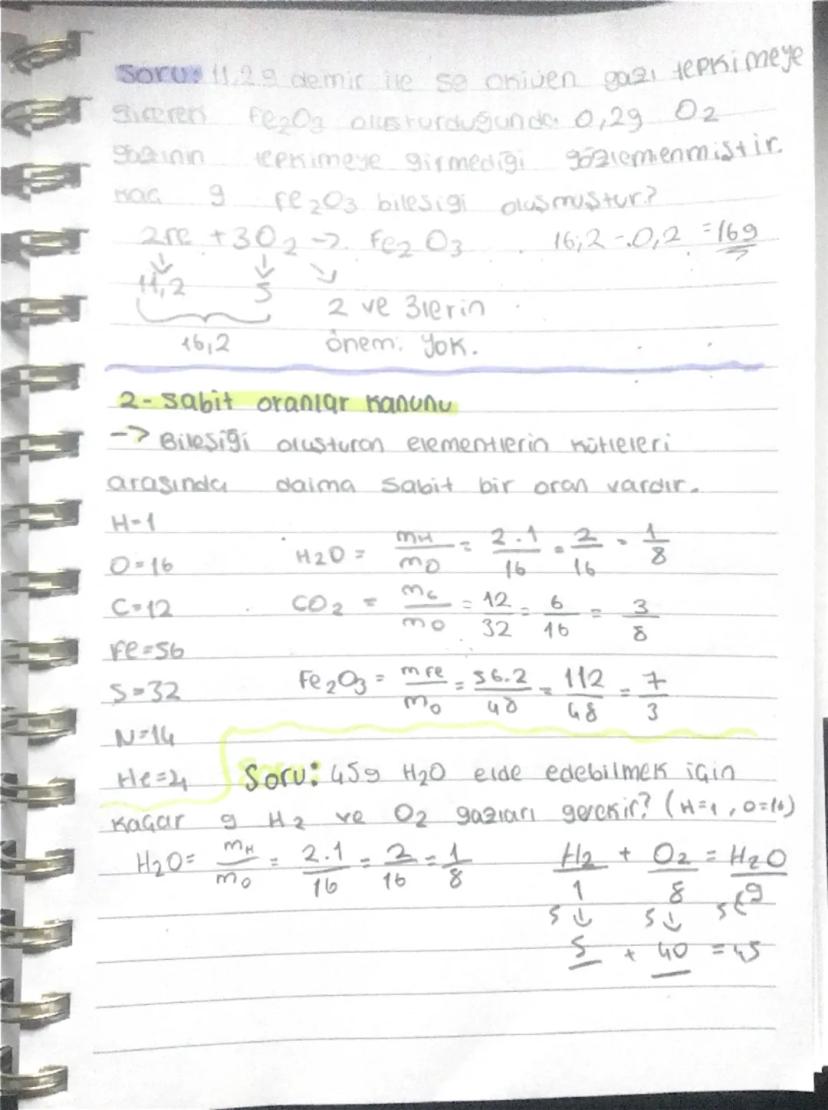 Soru: 11,2g demir ile 5g oksijen gazı tepkimeye
girerek Fe2O3 oluşturduğunda 0,2g O2
gazının tepkimeye girmediği gözlemlenmiştir.
Kaç g Fe2O3 bileşiği oluşmuştur?
2Fe + 3O2 -> Fe2O3 16,2 - 0,2 = 16g
11,2 5 2 ve 3lerin
16,2 önemi yok.
2- Sabit oranlar kanunu
-> Bileşiği oluşturan elementlerin kütleleri
arasında daima sabit bir oran vardır.
H=1
O=16 H2O = mH/mO = 2.1/16 = 2/16 = 1/8
C=12 CO2 = mC/mO = 12/32 = 6/16 = 3/8
Fe=56
S=32 Fe2O3 = mFe/mO = 56.2/48 = 112/48 = 7/3
N=14
He=4 Soru: 45g H2O elde edebilmek için
Kaçar g H2 ve O2 gazları gerekir? (H=1, O=16)
H2O = mH/mO = 2.1/16 = 2/16 = 1/8 H2 + O2 = H2O
1 8 9
5↓ 5↓ 5
5 + 40 = 45